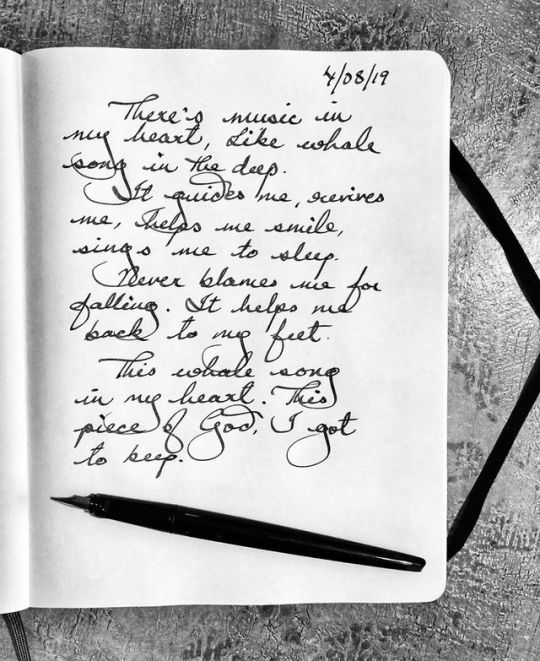 4/08/19
There's music in
my heart, like whale
song in the deep.
It guides me, revives
me, helps me smile,
sings me to sleep.
Never blames me for
falling. It helps me
back to my feet.
This whale song
in my heart. This
piece of God, I got
to keep.